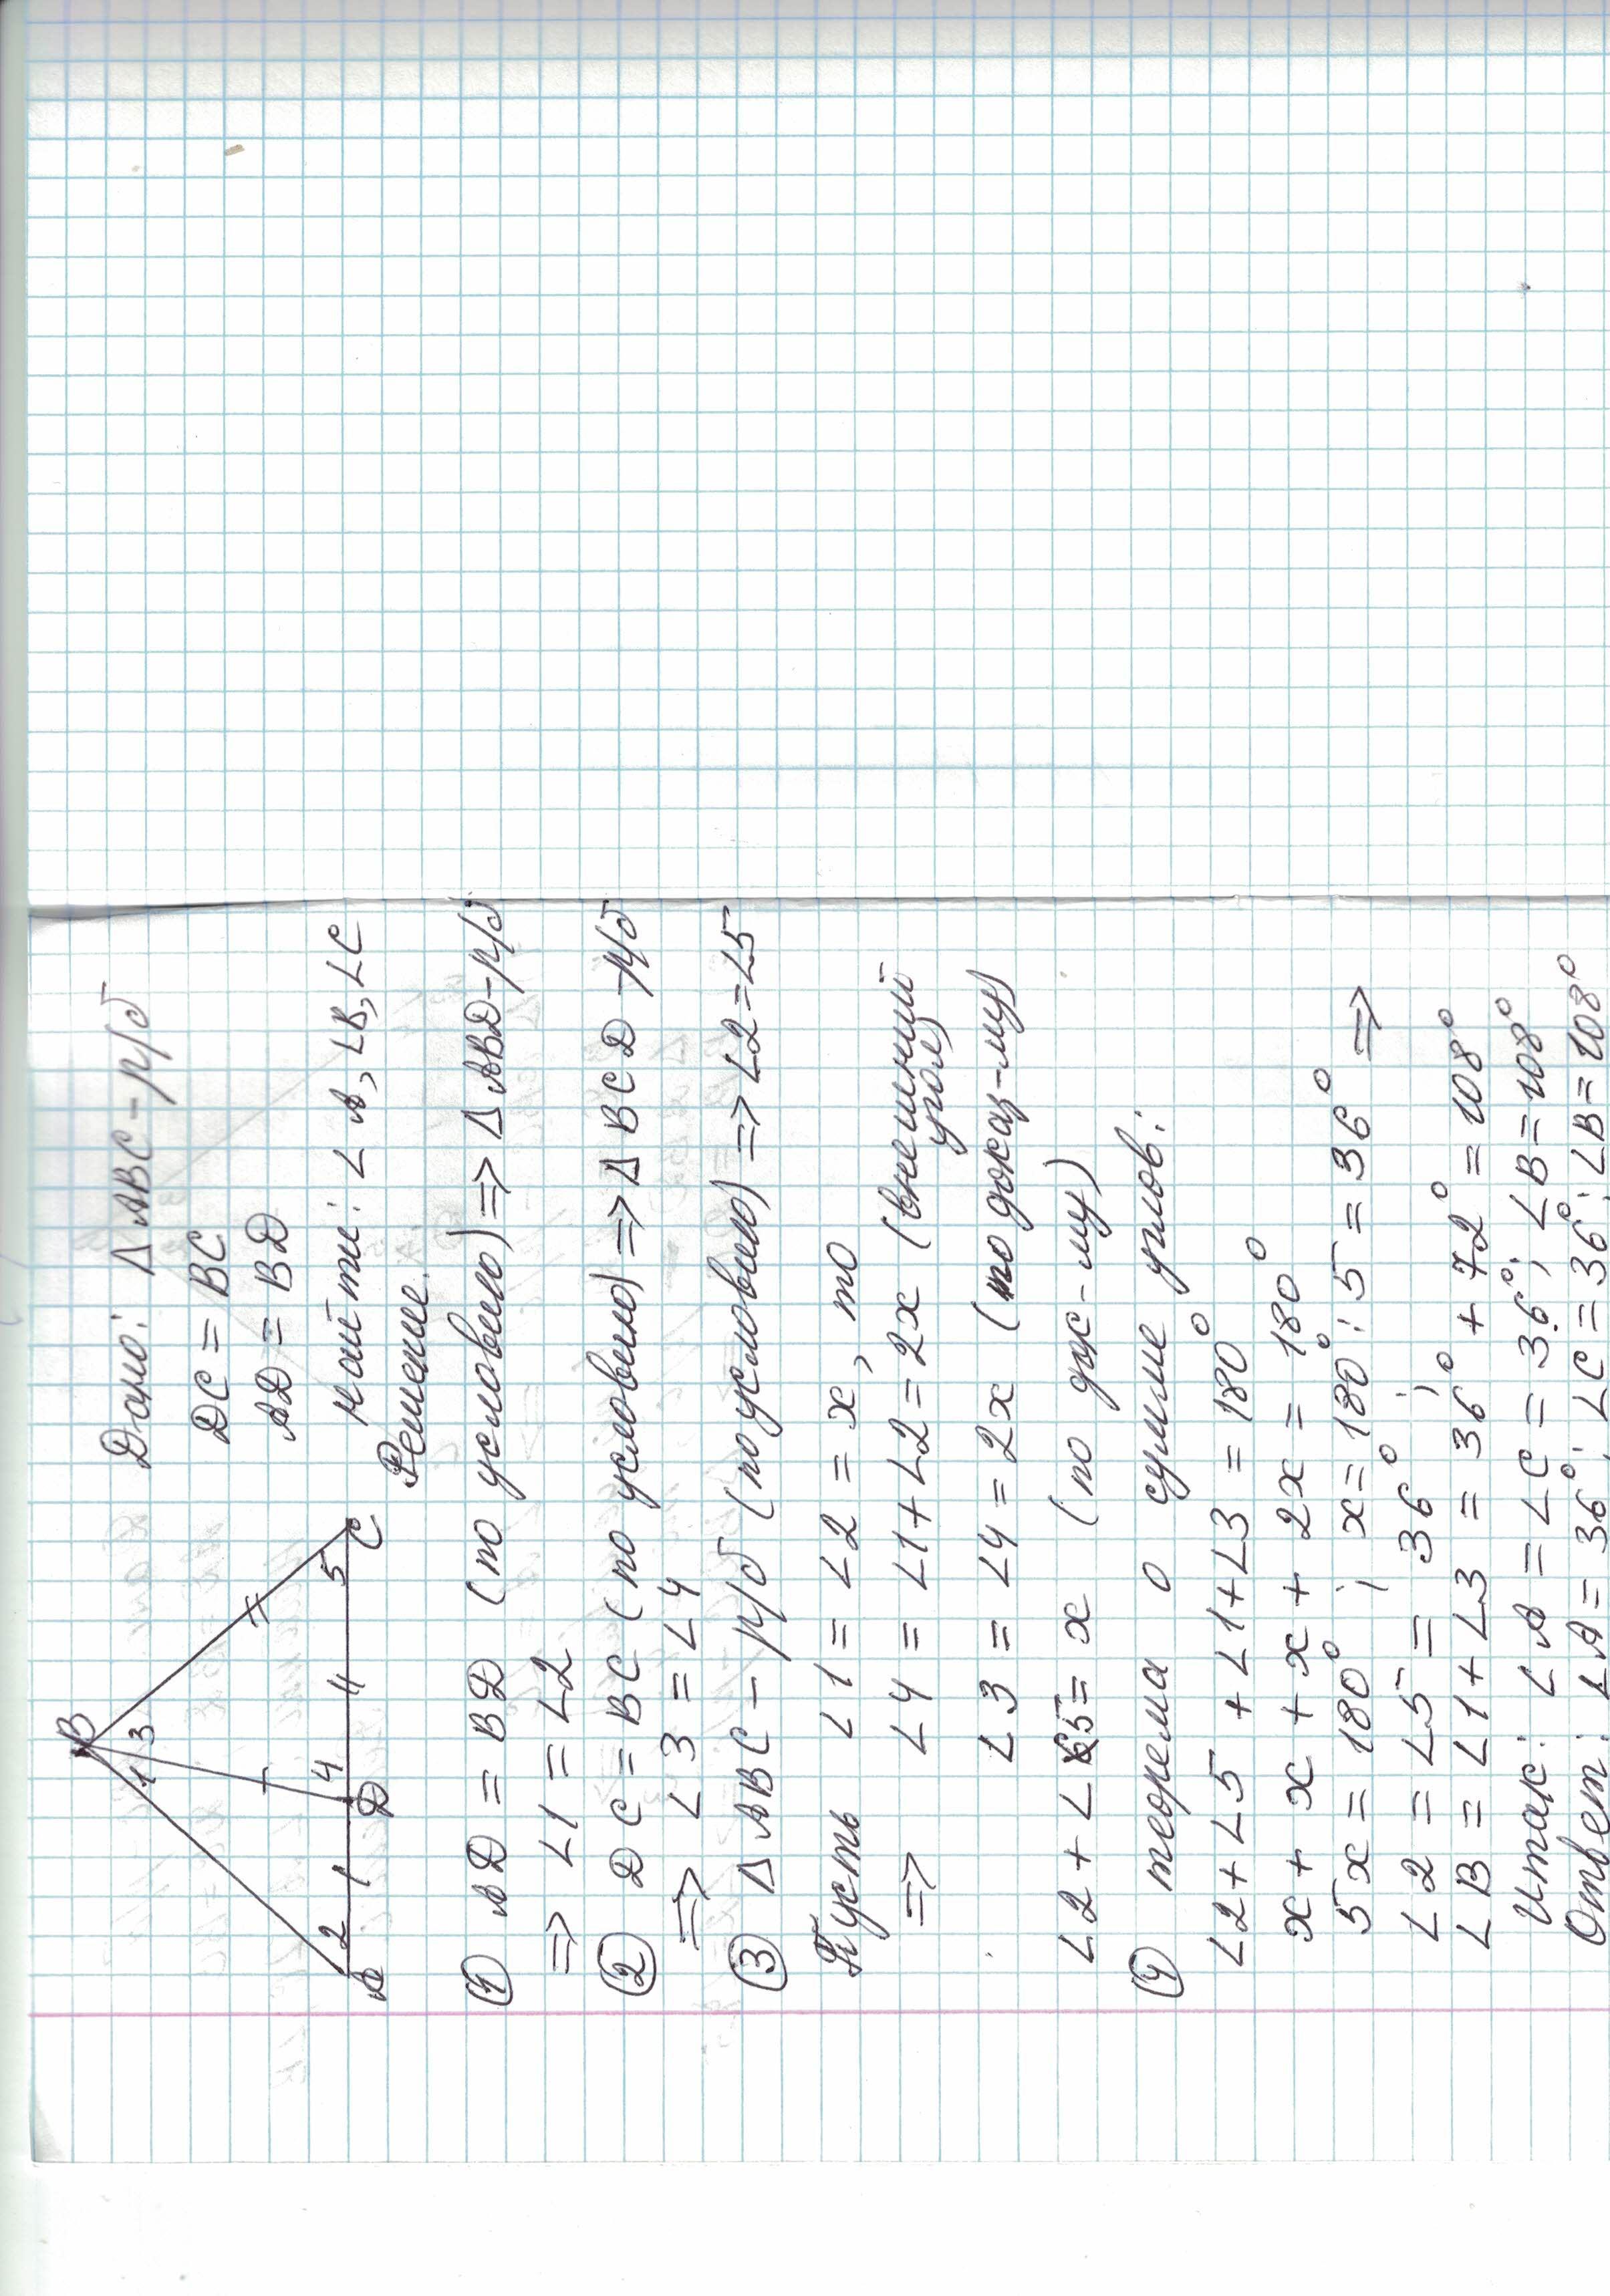 B
1 3
2 1 4 11 5
A D C
Дано: Δ ABC - р/б
DC = BC
AD = BD
Найти: ∠A, ∠B, ∠C
Решение.
① AD = BD (по условию) => Δ ABD - р/б
=> ∠1 = ∠2
② DC = BC (по условию) => Δ BCD - р/б
=> ∠3 = ∠4
③ Δ ABC - р/б (по условию) => ∠2 = ∠5
Пусть ∠1 = ∠2 = x, то
=> ∠4 = ∠1 + ∠2 = 2x (внешний угол)
∠3 = ∠4 = 2x (по доказ-му)
∠2 + ∠5 = x (по док-му)
④ теорема о сумме углов:
∠2 + ∠5 + ∠1 + ∠3 = 180°
x + x + x + 2x = 180°
5x = 180°; x = 180° : 5 = 36° =>
∠2 = ∠5 = 36°;
∠B = ∠1 + ∠3 = 36° + 72° = 108°
Итак: ∠A = ∠C = 36°; ∠B = 108°
Ответ: ∠A = 36°; ∠C = 36°; ∠B = 108°